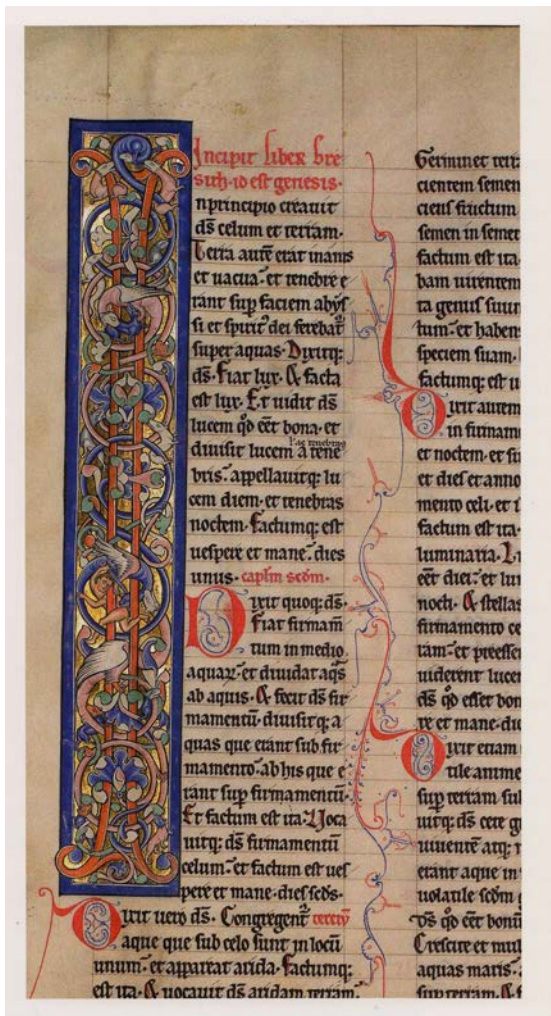 Incipit liber bre
sith · id est genesis ·
n principio creauit
ds̄ celum et terram ·
Terra autē erat inanis
et uacua · et tenebre e
rant sup faciem abyſ
si et spirit' dei ferebat'
super aquas · Dixitq:
ds̄ · Fiat lux · & facta
est lux · Et uidit ds̄
lucem qd̄ eēt bona · et
diuisit lucem a tene
bris · appellauitq: lu
cem diem · et tenebras
noctem · factumq: est
uespere et mane · dies
unus · caplm scdm ·
Dixit quoq: ds̄ ·
Fiat firmam
tum in medio
aquaꝝ · et diuidat aq̄s
ab aquis · & fecit ds̄ fir
mamentū · diuisitq: a
quas que erant sub fir
mamento · ab his que e
rant sup firmamentū ·
Et factum est ita · Uoca
uitq: ds̄ firmamentū
celum · et factum est ues
pere et mane · dies scds̄ ·
Dixit uero ds̄ · Congregent'
aque que sub celo sunt in locū
unum · et appareat arida · factumq:
est ita · & uocauit ds̄ aridam terram ·
Germinet terr
cientem semen
ciens fructum
semen in semet
factum est ita ·
bam uirentem
ta genus suum
tum · et haben
speciem suam ·
factumq: est u
Dixit autem
in firmam
et noctem · et si
et dies et anno
mento celi · et i
factum est ita ·
luminaria · L
eēt diei · et lu
nocti · & stellas
firmamento ce
ram · et preesse
uiderent lucem
ds̄ qd̄ esset bon
re et mane · die
Dixit etiam
tile anime
sup terram sub
uitq: ds̄ cete g
uiuentē atq: m
erant aque in
uolatile scdm g
ds̄ qd̄ eēt bonū
Crescite et mul
aquas maris ·
sup terram · &